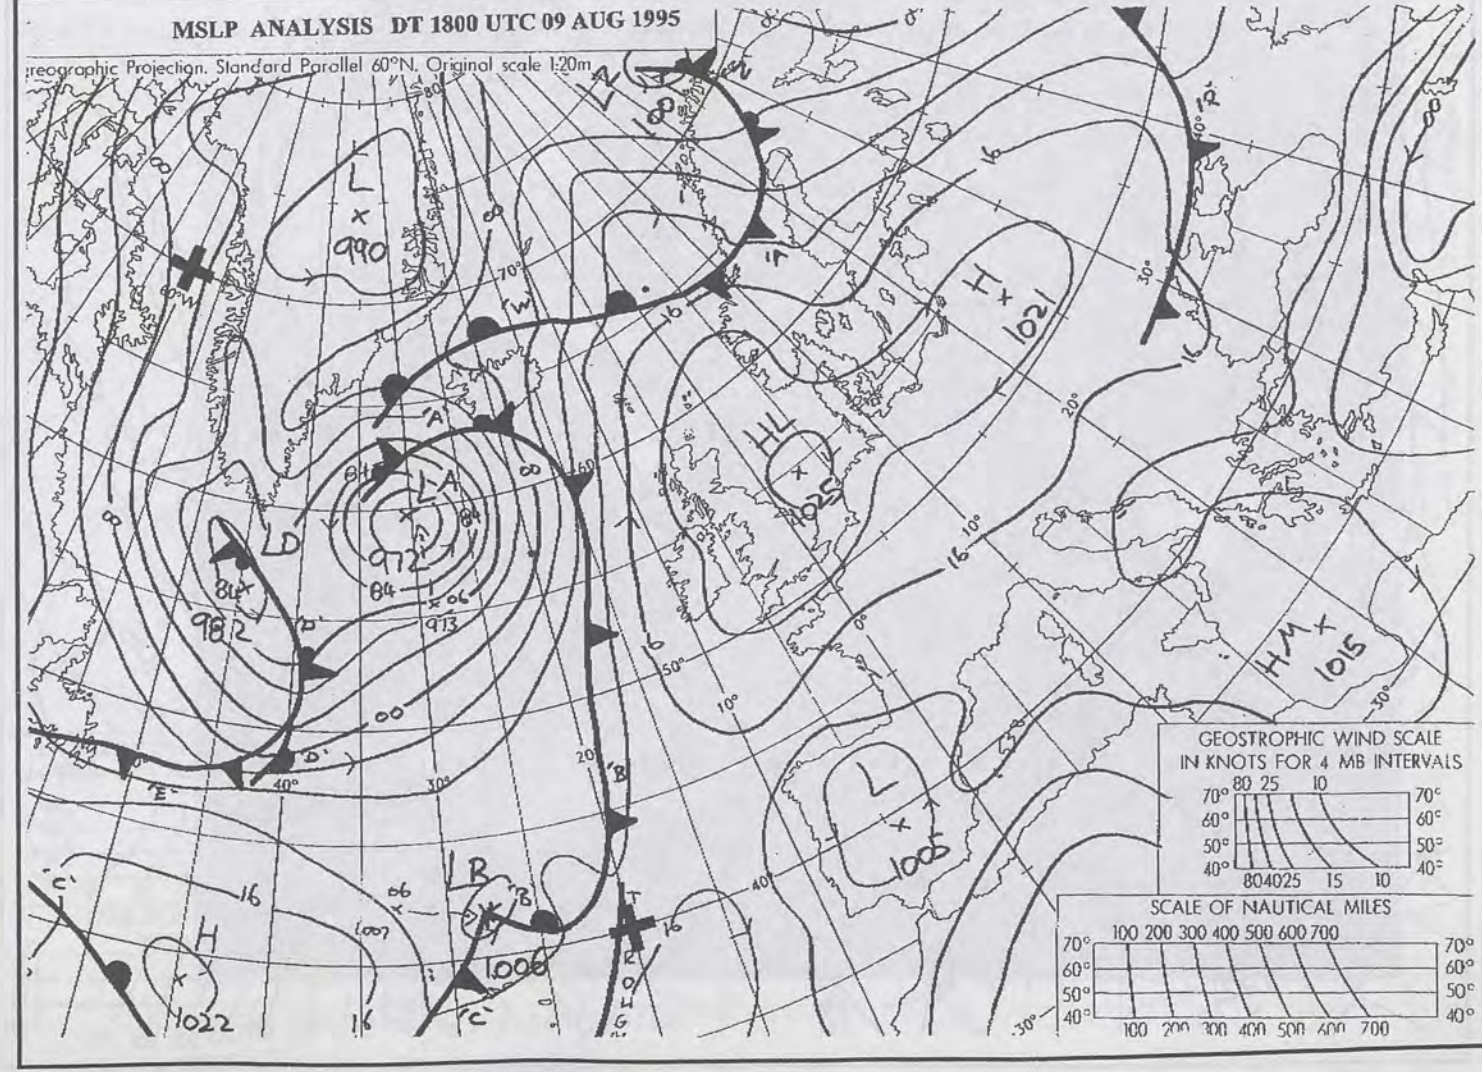 MSLP ANALYSIS DT 1800 UTC 09 AUG 1995
reographic Projection. Standard Parallel 60°N. Original scale 1:20m
80
L
990
60°W
70°
'W'
16
'A'
84
LA
972
84
84
00
60
LD
84
982
'D'
06
973
00
'D'
'E'
40°
30°
20°
'B'
50°
10°
0°
16
16
10°
20°
30°
40°
16
16
H
1021
HL
1025
HM
1015
30°
L
1005
40°
30°
LB
'B'
1000
'C'
06
1007
16
'C'
H
1022
16
16
TROUGH
GEOSTROPHIC WIND SCALE
IN KNOTS FOR 4 MB INTERVALS
80 25 10
70° 70°
60° 60°
50° 50°
40° 40°
80 40 25 15 10
SCALE OF NAUTICAL MILES
100 200 300 400 500 600 700
70° 70°
60° 60°
50° 50°
40° 40°
100 200 300 400 500 600 700